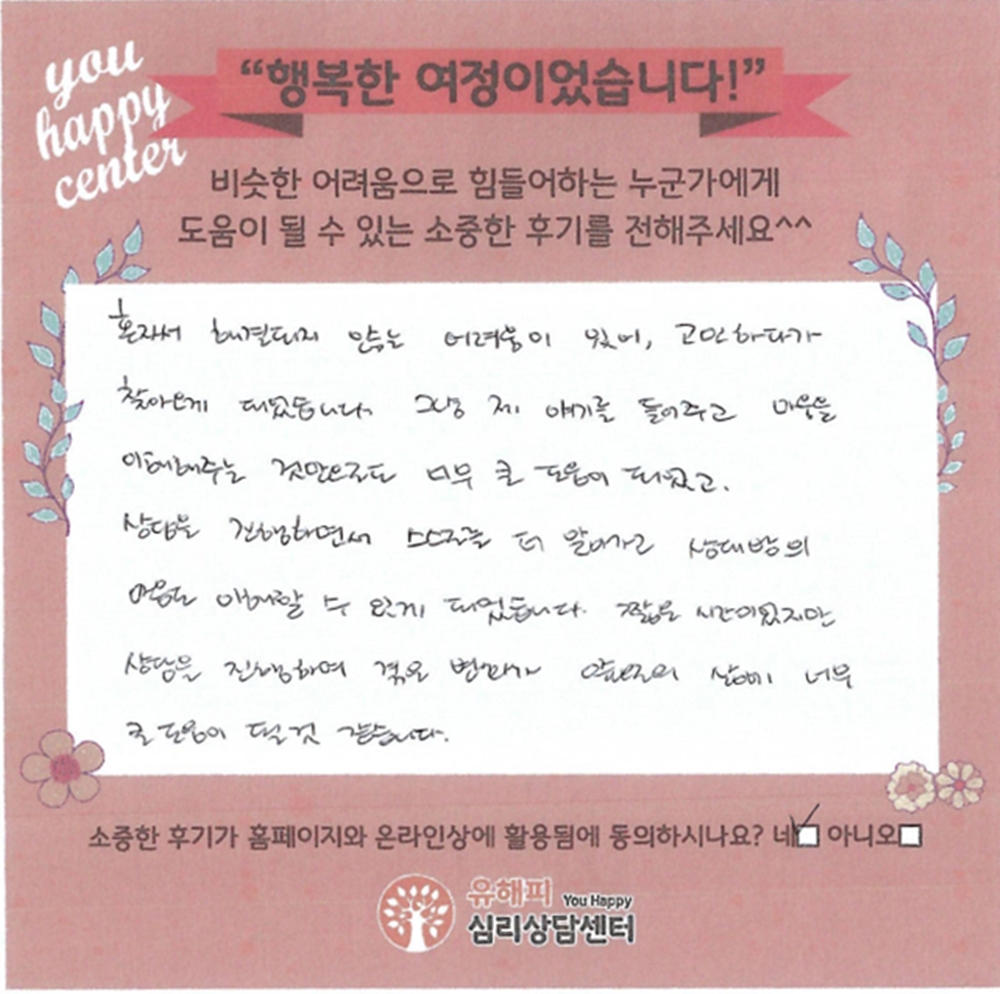 you
happy
center
“행복한 여정이었습니다!”
비슷한 어려움으로 힘들어하는 누군가에게
도움이 될 수 있는 소중한 후기를 전해주세요^^
혼자서 해결되지 않는 어려움이 있어, 고민하다가
찾아오게 되었습니다. 그냥 제 얘기를 들어주고 마음을
이해해주는 것만으로도 너무 큰 도움이 되었고.
상담을 진행하면서 스스로를 더 알아가고 상대방의
마음도 이해할 수 있게 되었습니다. 짧은 시간이었지만
상담을 진행하며 겪은 변화가 앞으로의 삶에 너무
큰 도움이 될 것 같습니다.
소중한 후기가 홈페이지와 온라인상에 활용됨에 동의하시나요? 네 아니오
유해피 You Happy
심리상담센터